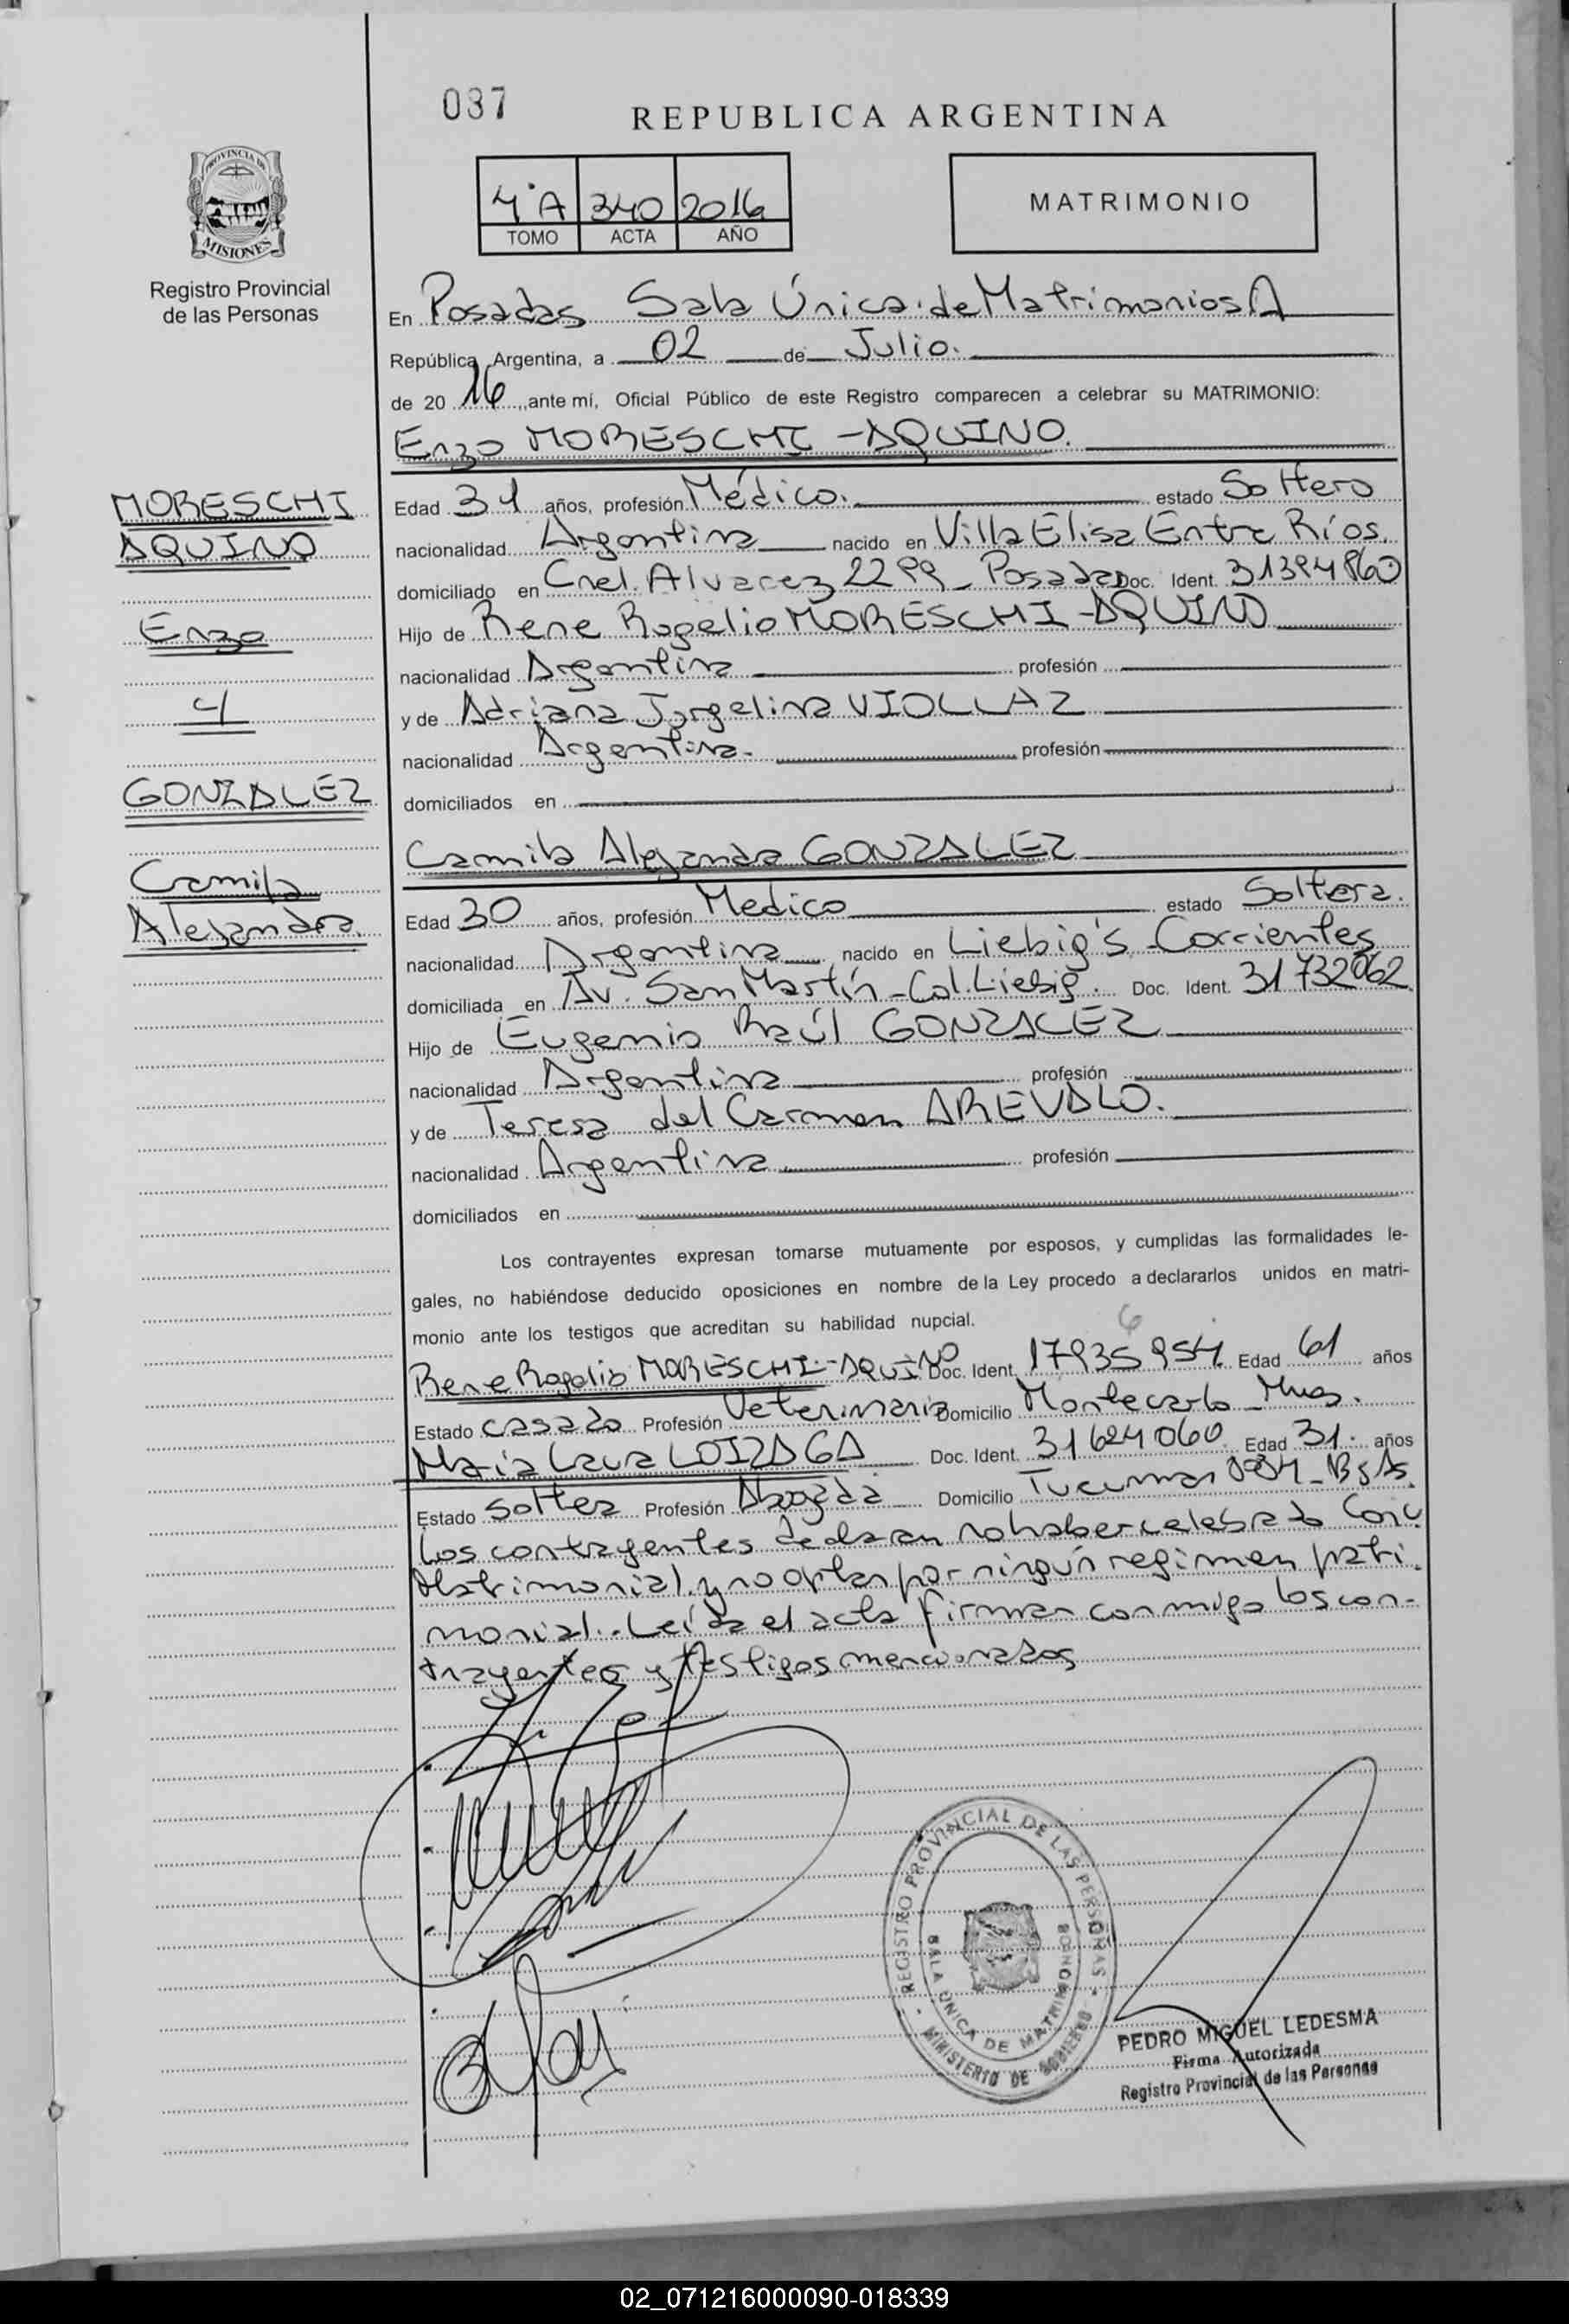 037
REPUBLICA ARGENTINA
4°A 340 2016
TOMO ACTA AÑO
MATRIMONIO
PROVINCIA DE
MISIONES
Registro Provincial
de las Personas
En Posadas Sala Única de Matrimonios A
República Argentina, a 02 de Julio.
de 20 16 ,ante mí, Oficial Público de este Registro comparecen a celebrar su MATRIMONIO:
Enzo MORESCHI - AQUINO.
MORESCHI
AQUINO
Enzo
GONZALEZ
Camila
Alejandra
Edad 31 años, profesión Médico. estado Soltero
nacionalidad Argentina nacido en Villa Elisa Entre Ríos.
domiciliado en Cnel. Alvarez 2299 - Posadas Doc. Ident. 31394860
Hijo de Rene Rogelio MORESCHI - AQUINO
nacionalidad Argentina profesión
y de Adriana Jorgelina VIOLLAZ
nacionalidad Argentina. profesión
domiciliados en
Camila Alejandra GONZALEZ
Edad 30 años, profesión Medico estado Soltera.
nacionalidad Argentina nacido en Liebig's Corrientes
domiciliada en Av. San Martín - Col. Liebig. Doc. Ident. 31732062
Hijo de Eugenio Raúl GONZALEZ
nacionalidad Argentina profesión
y de Teresa del Carmen AREVALO.
nacionalidad Argentina profesión
domiciliados en
Los contrayentes expresan tomarse mutuamente por esposos, y cumplidas las formalidades le-
gales, no habiéndose deducido oposiciones en nombre de la Ley procedo a declararlos unidos en matri-
monio ante los testigos que acreditan su habilidad nupcial.
6
Rene Rogelio MORESCHI - AQUINO Doc. Ident. 17935954 Edad 61 años
Estado casado Profesión Veterinario Domicilio Montecarlo - Mnes.
Maria Laura LOIZAGA Doc. Ident. 31624060 Edad 31. años
Estado soltera Profesión Abogada Domicilio Tucuman - Bs As.
Los contrayentes declaran no haber celebrado Conv.
Matrimonial y no optan por ningún regimen patri-
monial. Leída el acta firman conmigo los con-
trayentes y testigos mencionados
REGISTRO PROVINCIAL DE LAS PERSONAS
SALA ÚNICA DE MATRIMONIOS
MINISTERIO DE GOBIERNO
PEDRO MIGUEL LEDESMA
Firma Autorizada
Registro Provincial de las Personas
02_071216000090-018339